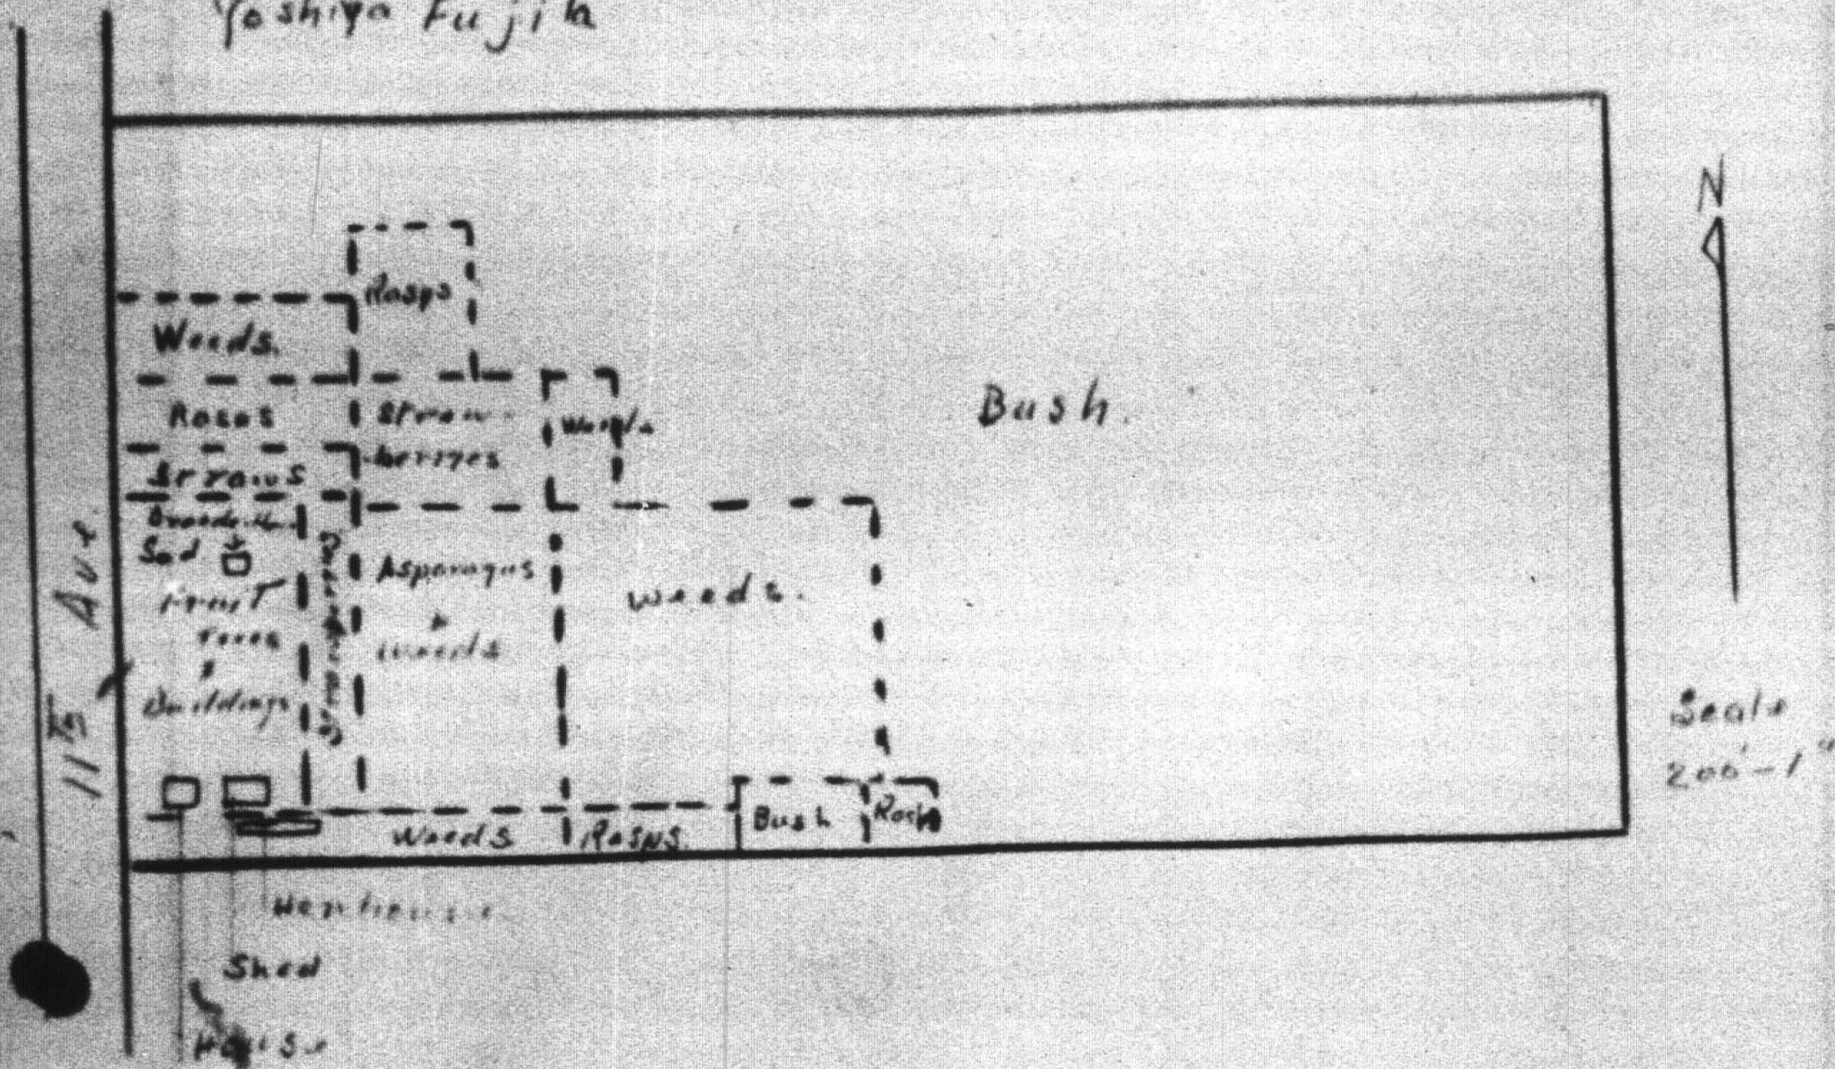 Yoshiya Fujita
N
Rasps
Weeds.
Roses
Straw-
berries
Weeds
Bush.
Straws
Sod
Fruit
Trees
&
Buildings
Asparagus
&
Weeds
Weeds.
11th Ave.
Scale
200' - 1"
Weeds
Rasps.
Bush
Henhouse
Shed
House